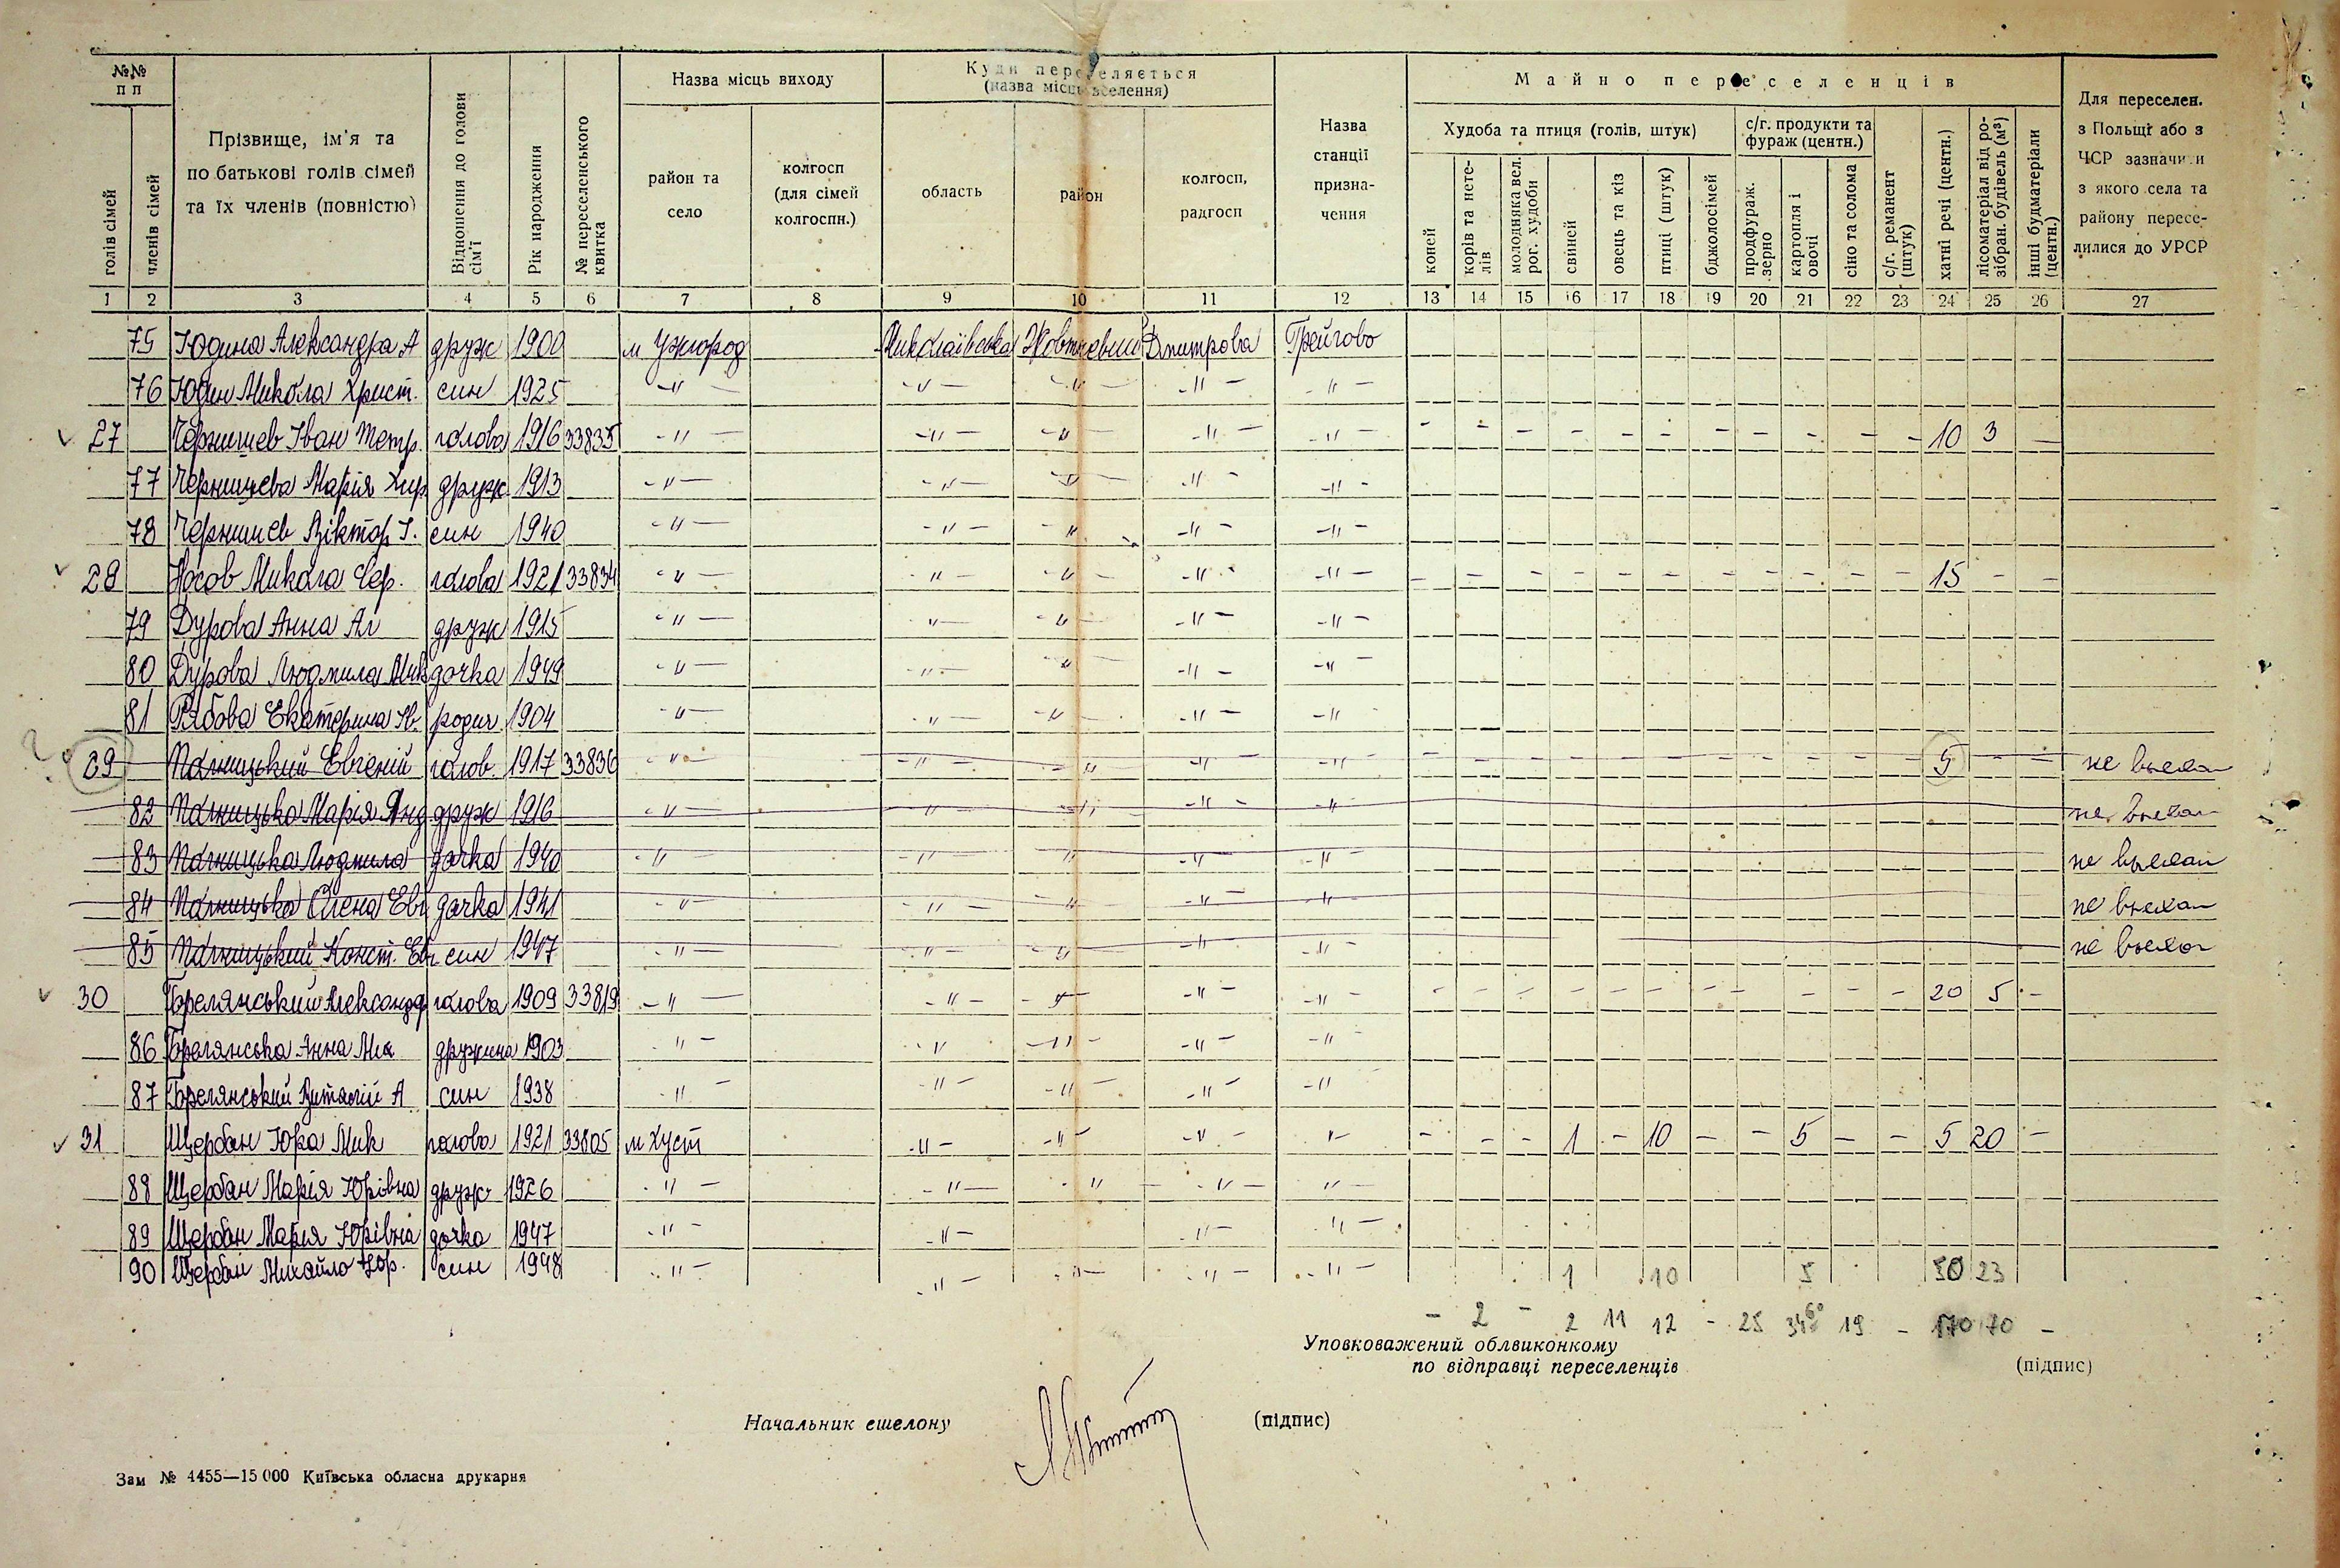 №№ п п
Прізвище, ім'я та по батькові голів сімей та їх членів (повністю)
Відношення до голови сім'ї
Рік народження
№ переселенського квитка
Назва місць виходу
Куди переселяється (назва місць вселення)
Назва станції призначення
Майно переселенців
Для переселен. з Польщі або з ЧСР зазначити з якого села та району пересе-лилися до УРСР
голів сімей
членів сімей
район та село
колгосп (для сімей колгоспн.)
область
район
колгосп, радгосп
Худоба та птиця (голів, штук)
с/г. продукти та фураж (центн.)
с/г. реманент (штук)
хатні речі (центн.)
лісоматеріал від розібран. будівель (м³)
інші будматеріали (центн.)
коней
корів та нетелів
молодняка вел. рог. худоби
свиней
овець та кіз
птиці (штук)
бджолосімей
продфураж. зерно
картопля і овочі
сіно та солома
1 2 3 4 5 6 7 8 9 10 11 12 13 14 15 16 17 18 19 20 21 22 23 24 25 26 27
75 Юдина Александра А друж 1900 м Ужгород Миколаївська Жовтневий Дмитрова Грейгово
76 Юдин Микола Христ. син 1925 -"- -"- -"- -"- -"-
27 Чернишев Іван Петр. голова 1916 33835 -"- -"- -"- -"- -"- - - - - - - - - - - - 10 3 -
77 Чернишева Марія Хир друж 1913 -"- -"- -"- -"- -"-
78 Чернишев Віктор І. син 1940 -"- -"- -"- -"- -"-
28 Носов Микола Сер. голова 1921 33834 -"- -"- -"- -"- -"- - - - - - - - - - - - 15 - -
79 Дурова Анна Ал друж 1915 -"- -"- -"- -"- -"-
80 Дурова Людмила Мик дочка 1949 -"- -"- -"- -"- -"-
81 Рябова Екатерина Ів. родич 1904 -"- -"- -"- -"- -"-
29 Євгеній голов. 1917 33836 -"- -"- -"- -"- -"- - - - - - - - - - - - 5 - - не выехал
82 Марія Анд друж 1916 -"- -"- -"- -"- -"- не выехал
83 Людмила дочка 1940 -"- -"- -"- -"- -"- не выехал
84 Олена Евг дочка 1941 -"- -"- -"- -"- -"- не выехал
85 Конст. Евг син 1947 -"- -"- -"- -"- -"- не выехал
30 Горелянський Александр голова 1909 33819 -"- -"- -"- -"- -"- - - - - - - - - - - 20 5 -
86 Горелянська Анна Мих дружина 1903 -"- -"- -"- -"- -"-
87 Горелянський Виталій А син 1938 -"- -"- -"- -"- -"-
31 Щербан Юра Мик голова 1921 33805 м Хуст -"- -"- -"- "- - - - 1 - 10 - - 5 - - 5 20 -
88 Щербан Марія Юрівна друж 1926 -"- -"- " -"- "-
89 Щербан Марія Юрівна дочка 1947 -"- -"- -"- -"-
90 Щербан Михайло Юр. син 1948 -"- -"- -"- -"- -"- 1 10 5 50 23
- 2 - 2 11 12 - 25 19 - 170 70 -
Уповноважений облвиконкому
по відправці переселенців
(підпис)
Начальник ешелону
(підпис)
Зам № 4455—15 000 Київська обласна друкарня